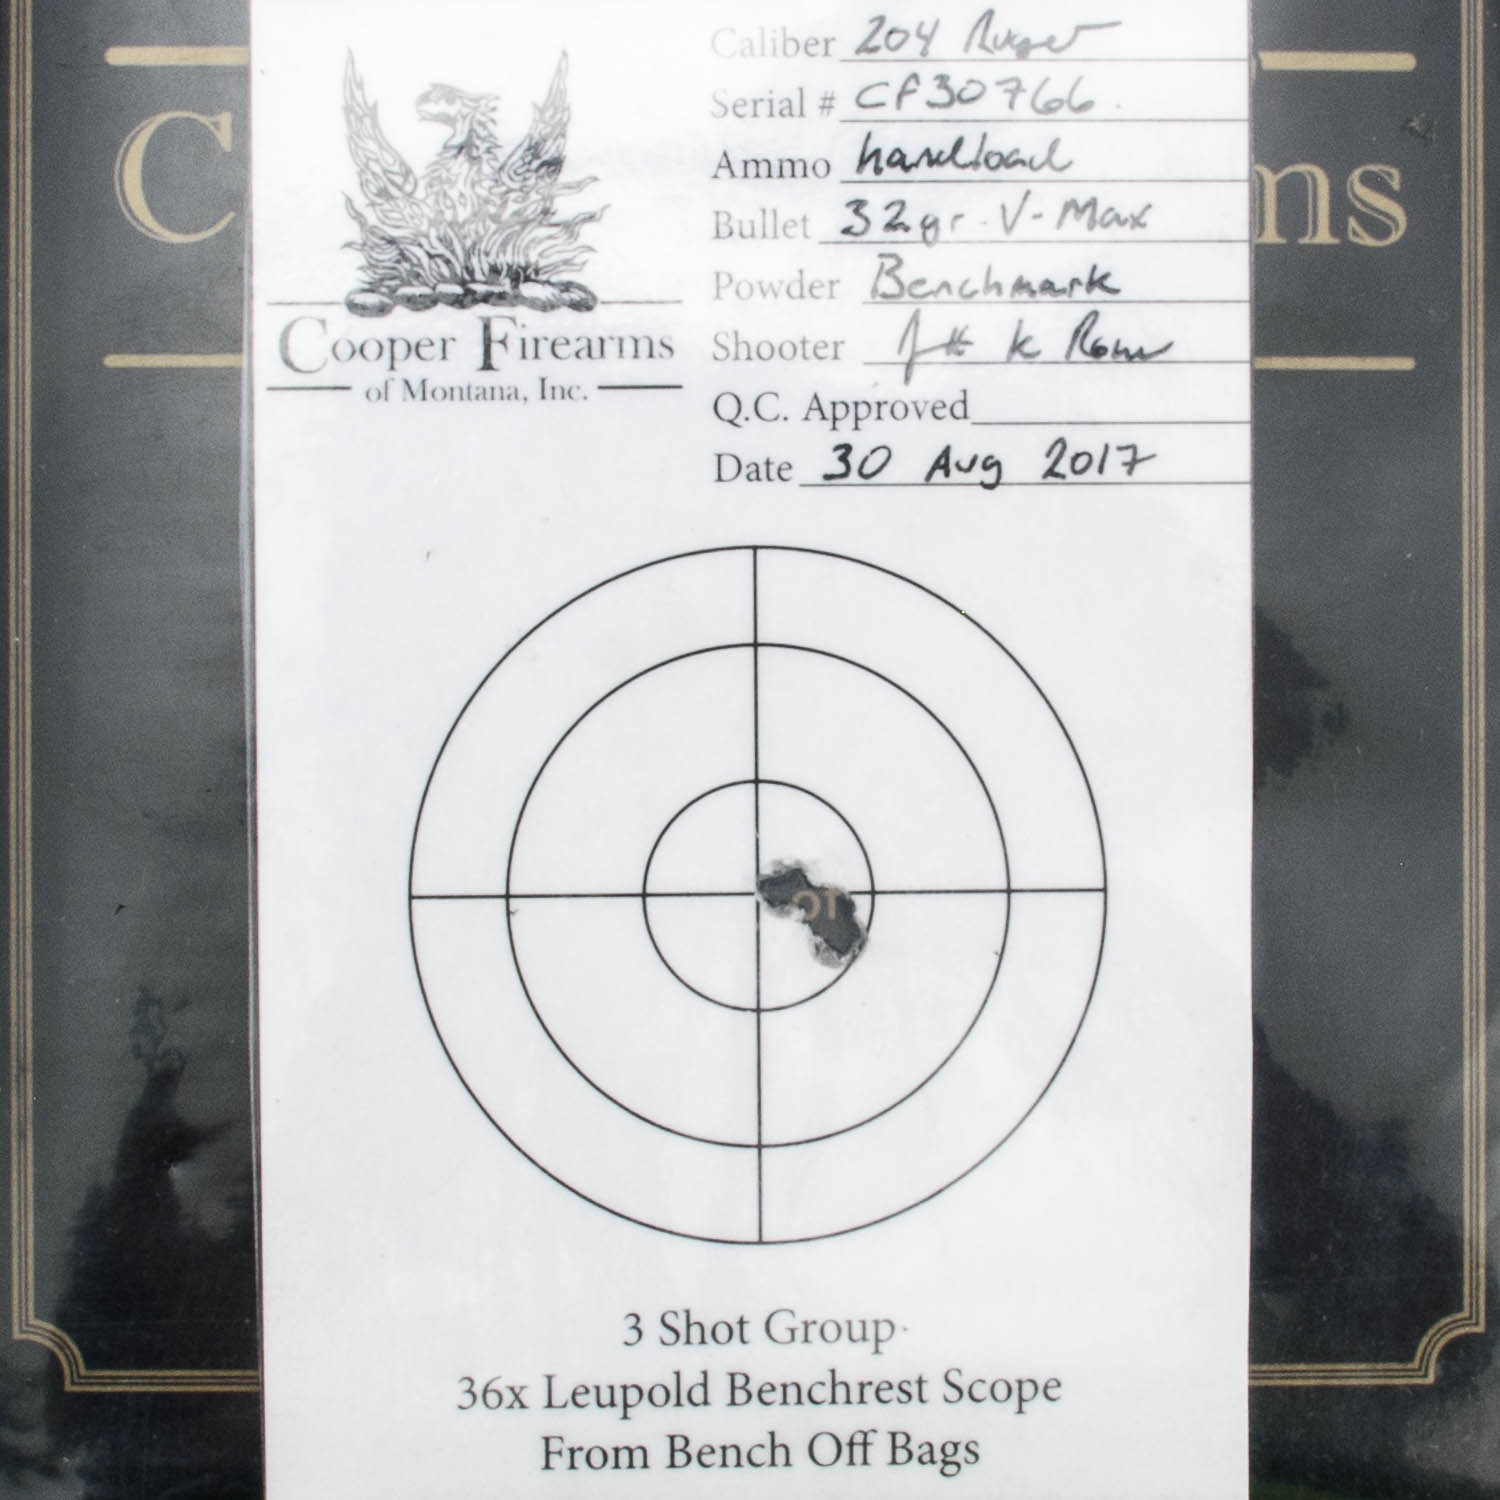 Caliber 204 Ruger
Serial # CF30766
Ammo handload
Bullet 32gr - V-Max
Powder Benchmark
Shooter
Q.C. Approved
Date 30 Aug 2017
Cooper Firearms
of Montana, Inc.
C
ms
of
3 Shot Group
36x Leupold Benchrest Scope
From Bench Off Bags